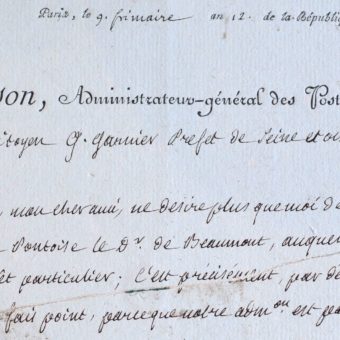 Paris, le 9. frimaire an 12. de la Républiq
son, Administrateur-général des Post
itoyen G. Garnier Préfet de Seine et ois
, mon cher ami, ne desire plus que moi d
Pontoise le Dr. de Beaumont, auquel
et particulier; C'est précisément, par de
fait point, parceque notre admon est pa